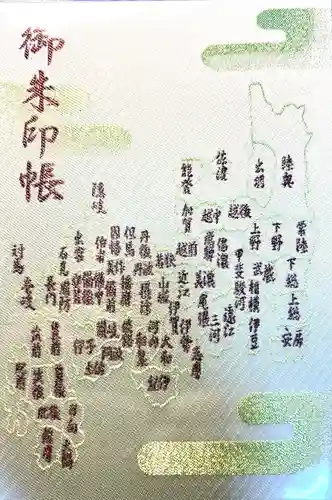 御朱印帳
陸奥
出羽
佐渡
能登
加賀
越中
越後
常陸
下野
上野
下総
上総
安房
武蔵
相模
伊豆
甲斐
駿河
遠江
三河
尾張
信濃
飛騨
美濃
越前
若狭
近江
山城
伊賀
伊勢
志摩
大和
紀伊
河内
和泉
摂津
丹波
丹後
但馬
播磨
因幡
美作
備前
伯耆
隠岐
出雲
石見
長門
周防
対馬
壱岐
筑前
肥前
筑後
肥後
日向
薩摩
大隅